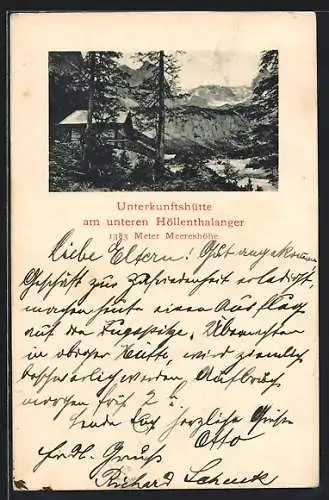 Unterkunftshütte
am unteren Höllenthalanger
1383 Meter Meereshöhe.
Liebe Eltern! Gut angekommen
Geschäft zur Zufriedenheit erledigt,
machen heute einen Ausflug
auf die Zugspitze, Übernachten
in obiger Hütte, wird ziemlich
beschwerlich werden, Aufbruch
morgen früh 2
Sende Euch herzliche Grüße
Otto
frdl. Gruß
Richard Schenk